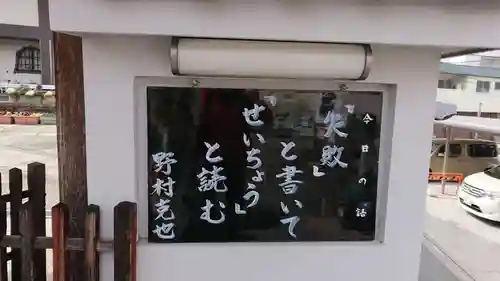 今日の話
『失敗』
と書いて
『せいちょう』
と読む
野村克也